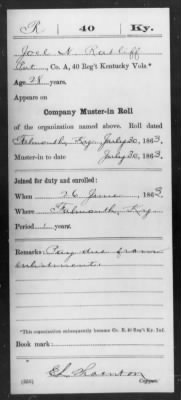 R | 40 | Ky.
Joel N. Ratliff
Pvt., Co. A, 40 Reg't Kentucky Vols.*
Age 28 years.
Appears on
Company Muster-in Roll
of the organization named above. Roll dated
Falmouth, Ky., July 30, 1863.
Muster-in to date July 30, 1863.
Joined for duty and enrolled:
When 26 June, 1863
Where Falmouth, Ky
Period years.
Remarks: Pay due from
enlistment.
*This organization subsequently became Co. K, 40 Reg't Ky. Inf.
Book mark:
Thornton
(356) Copyist.